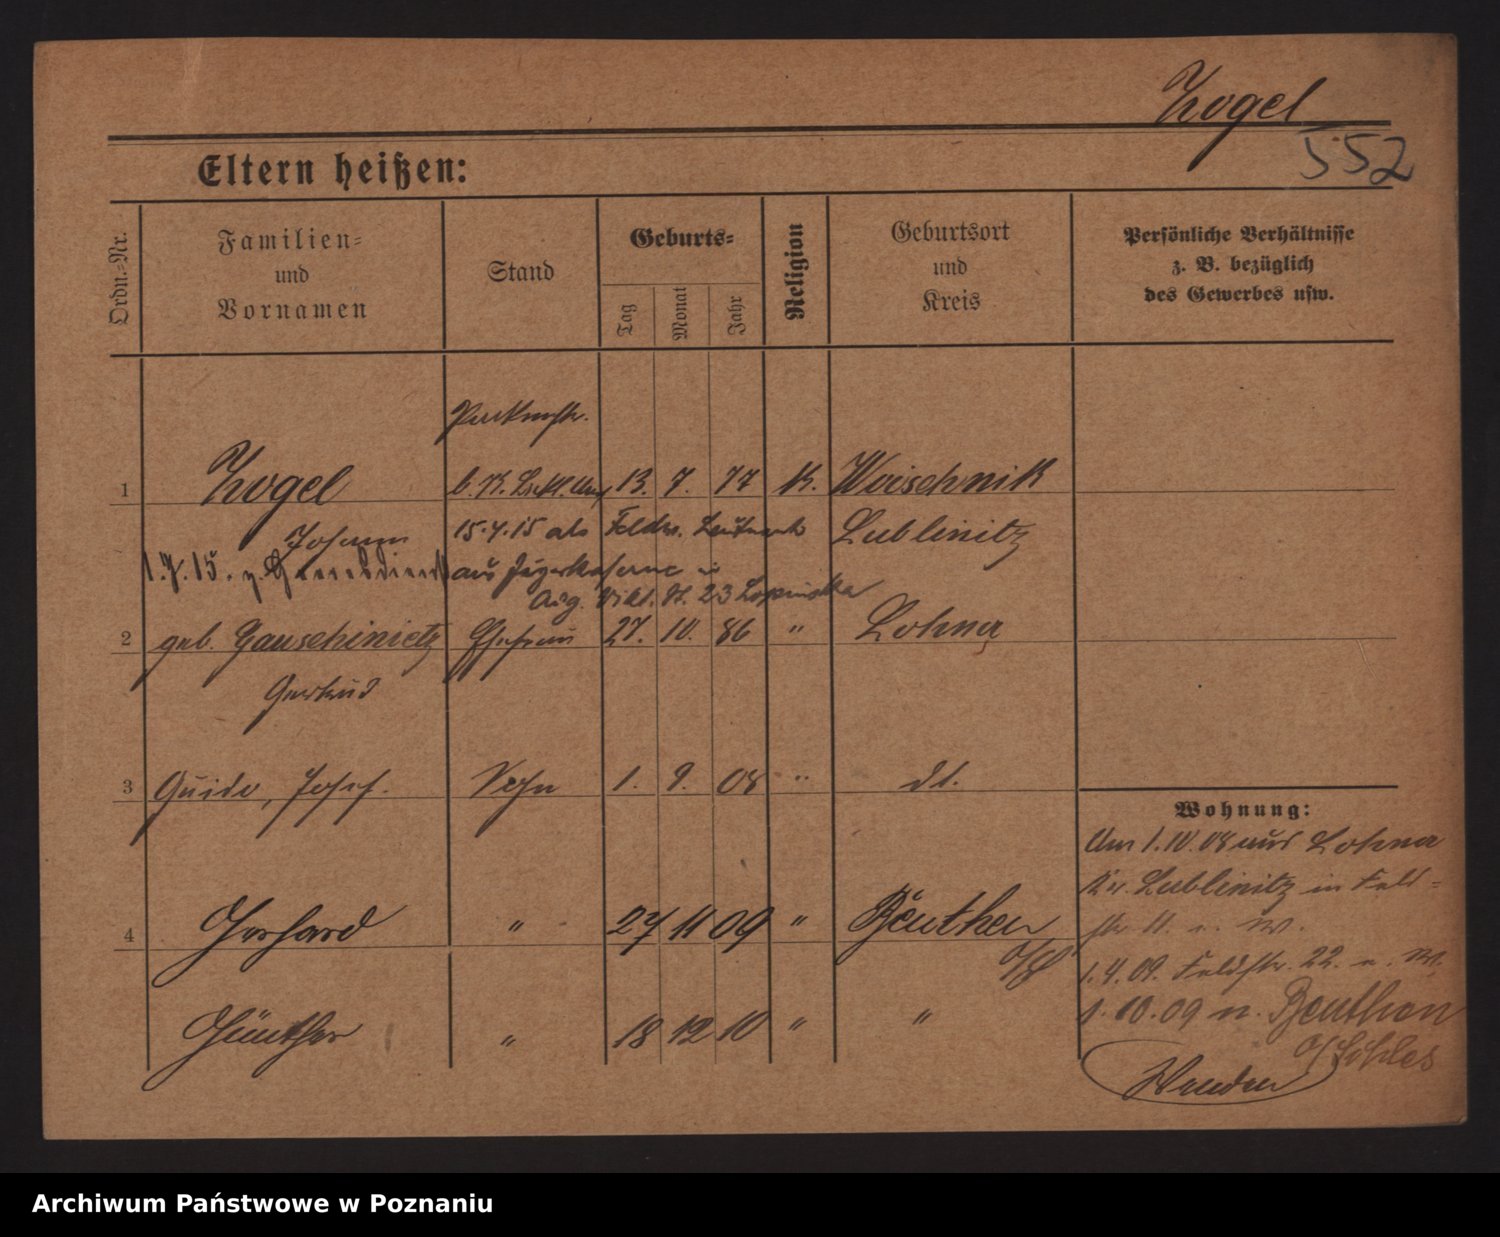 Zogel
552
Eltern heißen:
Ordn.=Nr.
Familien=
und
Vornamen
Stand
Geburts=
Tag
Monat
Jahr
Religion
Geburtsort
und
Kreis
Persönliche Verhältnisse
z. B. bezüglich
des Gewerbes usw.
1 Zogel 13. 7. 77 K. Woischnik
Johann 15.7.15 als Feldw. Leutnant Lublinitz
1.7.15. z. aus Jägerkaserne in
Aug. Vikt. St. 23
2 geb. Ehefrau 27. 10. 86 " Lohna
Gertrud
3 Guido, Josef. Sohn 1. 9. 08 " dt.
Wohnung:
Am 1.10.08 aus Lohna
Kr. Lublinitz in Feld=
str 11. n. W.
4 Gerhard " 27 11 09 " Beuthen
O/S
1.4.09. Feldstr. 22. n. W.
1.10.09 n. Beuthen
O/Schles
Günther " 18 12 10 " "
Wenden
Archiwum Państwowe w Poznaniu